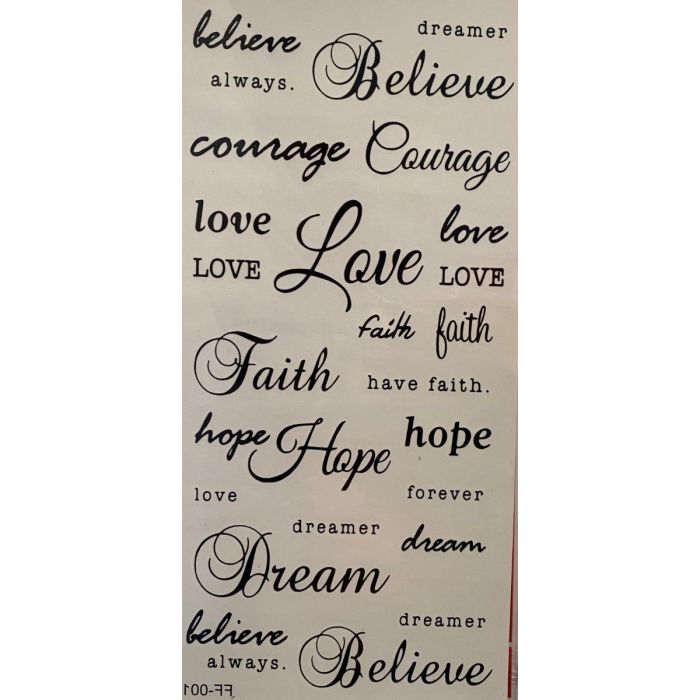 believe dreamer
always. Believe
courage Courage
love Love love
LOVE LOVE
faith faith
Faith have faith.
hope Hope hope
love forever
dreamer dream
Dream
believe dreamer
always. Believe
FF-001